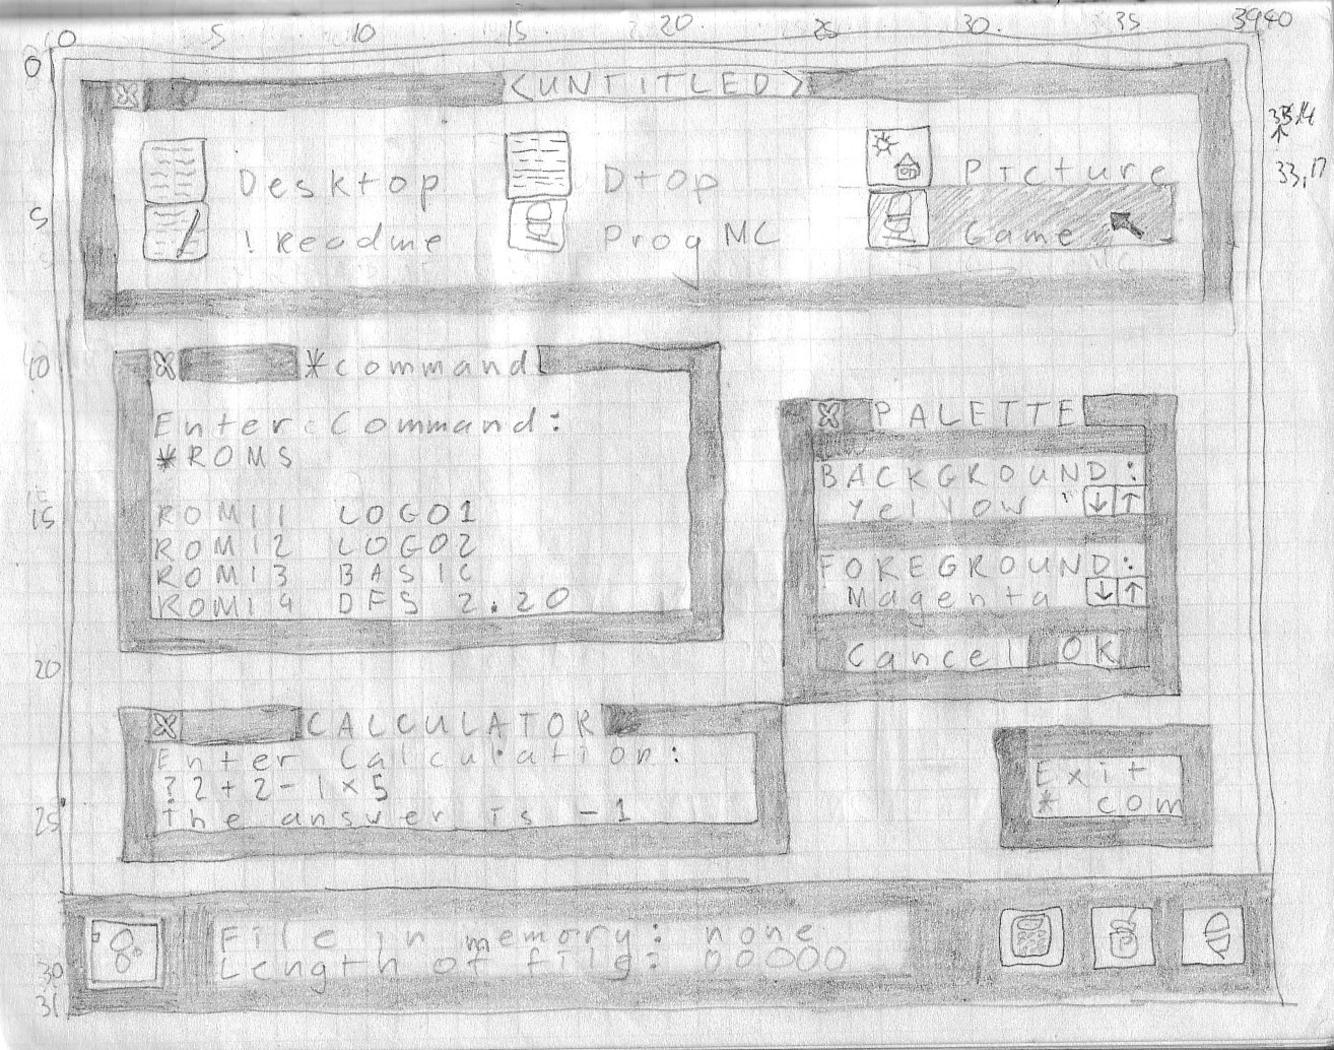 0 5 10 15 20 25 30 35 39 40
0
<UNTITLED>
Desktop Dtop Picture
5
!Readme ProgMC Game
33,17
10
*command
Enter Command:
*ROMS
15
ROM11 LOGO1
ROM12 LOGO2
ROM13 BASIC
ROM14 DFS 2.20
PALETTE
BACKGROUND:
Yellow ↓ ↑
FOREGROUND:
Magenta ↓ ↑
Cancel OK
20
CALCULATOR
Enter Calculation:
?2+2-1×5
25
The answer is -1
Exit
* com
File in memory: none
30
Length of file: 00000
31